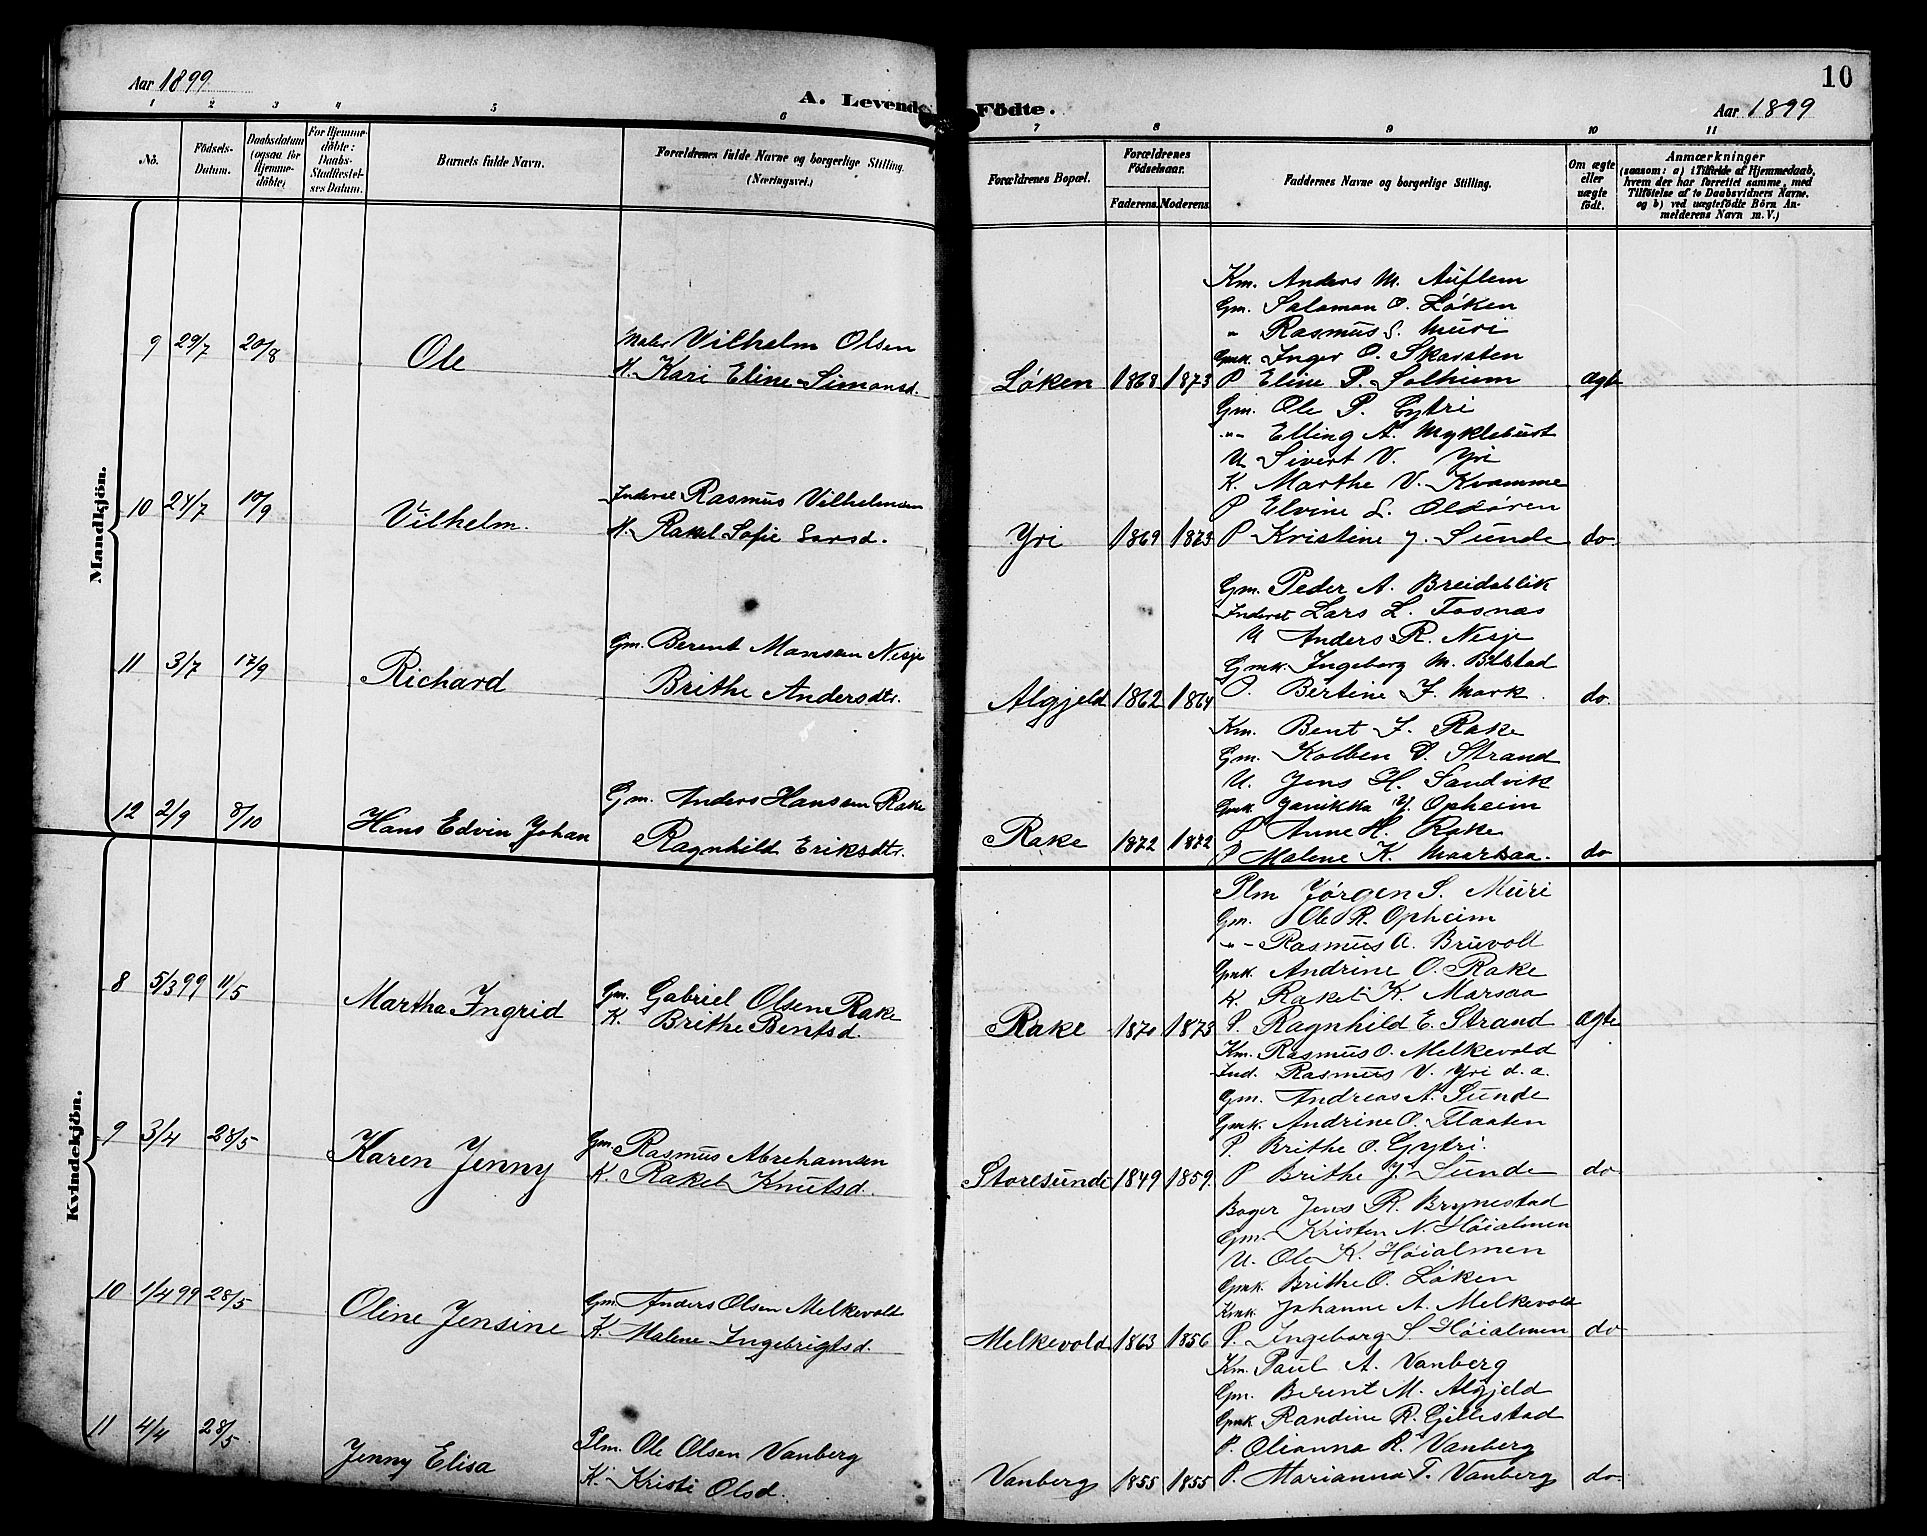 Aar 1899
A. Levende Födte.
10
Aar 1899
1 2 3 4 5 6 7 8 9 10 11
No.
Födsels-
Datum.
Daabsdatum
(ogsaa for
Hjemme-
döbte)
For Hjemme-
döbte:
Daabs-
Stadfæstel-
ses Datum.
Barnets fulde Navn.
Forældrenes fulde Navne og borgerlige Stilling.
(Næringsvei.)
Forældrenes Bopæl.
Forældrenes
Födselsaar.
Faderens. Moderens.
Faddernes Navne og borgerlige Stilling.
Om ægte
eller
uægte
födt.
Anmærkninger
(saasom: a) i Tilfælde af Hjemmedaab,
hvem der har forrettet samme, med
Tilföielse af to Daabsvidners Navne,
og b) ved uægtefödte Börn An-
melderens Navn m. V.)
Mandkjön.
9 29/7 20/8 Ole
Maler Vilhelm Olsen
H. Kari Eline Simonsd.
Løken 1868 1873
Km. Anders M. Auflem
Gm. Salamon O. Løken
" Rasmus S. Muri
Gmk. Inger O. Skarsten
P Eline P. Solheim ægte
10 24/7 10/9 Vilhelm.
Inderst Rasmus Vilhelmsen
H. Rakel Sofie Larsd.
Yri 1869 1873
Gm. Ole P. Gytri
-"- Elling A. Myklebust
U Sivert V. Yri
K. Marthe V. Kvamme
P Elvine L. Oldøren
P Kristine J. Sunde do.
11 3/7 17/9 Richard
Gm. Berent Monsen Nesje
Brithe Andersdtr.
Algjeld 1862 1864
Gm. Peder A. Breidablik
Inderst Lars L. Fosnæs
U Anders R. Nesje
Gmk. Ingeborg M. Bilstad
P. Bertine J. Mark. do.
12 2/9 8/10 Hans Edvin Johan
Gm. Anders Hansen Rake
Ragnhild Eriksdtr.
Rake 1872 1872
Km. Bent J. Rake
Gm. Kolben D. Strand
U. Jens H. Sandvik
Gmk. Janikka J. Opheim
P Anne H. Rake
P Malene K. Maarsaa. do
Kvindekjön.
8 5/3 99 11/5 Martha Ingrid
Gm. Gabriel Olsen Rake
K. Brithe Bentsd.
Rake 1870 1873
Plm Jørgen S. Muri
Gm. Ole R. Opheim
-"- Rasmus A. Bruvoll
Gmk. Andrine O. Rake
K. Rakel K. Marsaa
P. Ragnhild E. Strand ægte
9 3/4 28/5 Karen Jenny
Gm. Rasmus Abrehamsen
K. Rakel Knutsd.
Storesunde 1849 1859.
Km. Rasmus O. Melkevold
Ind. Rasmus V. Yri d. a.
Gm. Andreas A. Sunde
Gmk. Andrine O. Flaaten
P. Brithe O. Gytri.
P Brithe J. Sunde do
10 1/4 99 28/5 Oline Jensine
Gm. Anders Olsen Melkevold
K. Malene Ingebrigtsd.
Melkevold 1863 1856
Bager Jens R. Brynestad
Gm. Kristen N. Høialmen
U. Ole K. Høialmen
Gmk. Brithe O. Løken
Kmk. Johanne A. Melkevold
P. Ingeborg S Høialmen do
11 4/4 28/5 Jenny Elisa
Plm. Ole Olsen Vanberg
K. Kristi Olsd.
Vanberg 1855 1855
Km. Paul A. Vanberg
Gm. Berent M. Algjeld
Gmk. Randine R. Gjillestad
P. Olianna R. Vanberg
P. Marianna T. Vanberg do